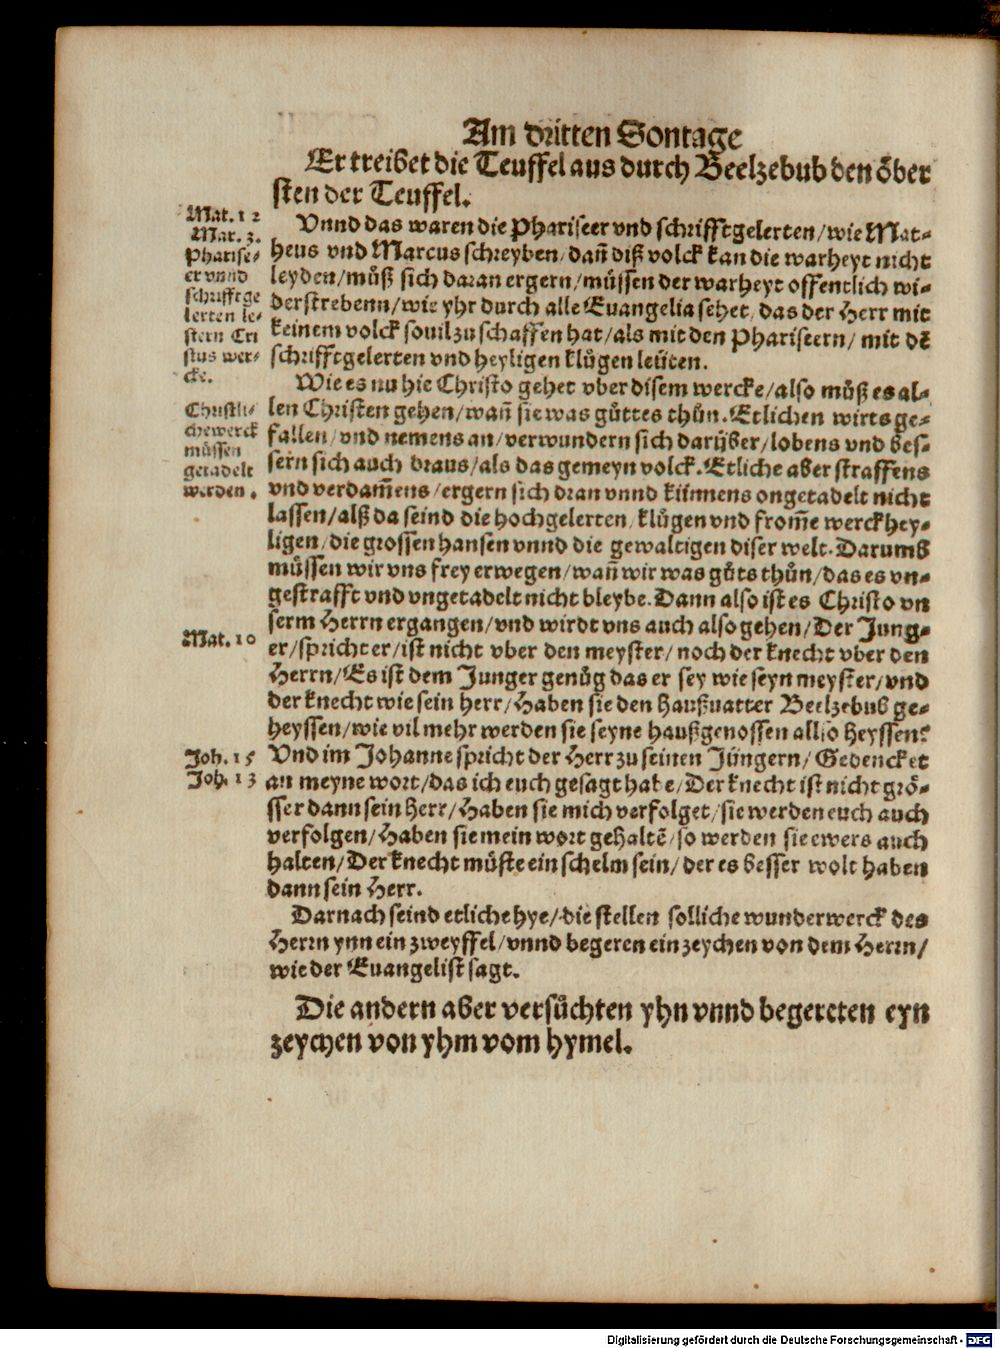 Am dritten Sontage
Er treibet die Teuffel aus durch Beelzebub den őber
sten der Teuffel.
Mat. 12
Mar. 3.
Pharise⸗
er vnnd
schrifftge
lerten le⸗
stern Cri
stus wer⸗
cke.
Vnnd das waren die Phariseer vnd schrifftgelerten/wie Mat⸗
heus vnd Marcus schreyben/dañ diß volck kan die warheyt nicht
leyden/můß sich daran ergern/müssen der warheyt offentlich wi⸗
derstrebenn/wie yhr durch alle Euangelia sehet/das der Herr mit
keinem volck souil zu schaffen hat/als mit den Phariseern/mit dē
schrifftgelerten vnd heyligen klůgen leüten.
Christli⸗
che werck
müssen
getadelt
werden.
Wie es nu hie Christo gehet vber disem wercke/also můß es al⸗
len Christen gehen/wañ sie was gůttes thůn. Etlichen wirts ge⸗
fallen/vnd nemens an/verwundern sich darüber/lobens vnd bes⸗
sern sich auch draus/als das gemeyn volck. Etliche aber straffens
vnd verdam̄ens/ergern sich dran vnnd künnens ongetadelt nicht
lassen/alß da seind die hochgelerten/klůgen vnd from̄e werckhey⸗
ligen/die grossen hansen vnnd die gewaltigen diser welt. Darumb
müssen wir vns frey erwegen/wañ wir was gůts thůn/das es vn⸗
gestrafft vnd vngetadelt nicht bleybe. Dann also ist es Christo vn
serm Herrn ergangen/vnd wirdt vns auch also gehen/Der Jung⸗
Mat. 10
er/spricht er/ist nicht vber den meyster/noch der knecht vber den
Herrn/Es ist dem Junger genůg das er sey wie seyn meyster/vnd
der knecht wie sein herr/Haben sie den Haußuatter Beelzebub ge⸗
heyssen/wie vil mehr werden sie seyne haußgenossen allso heyssen?
Joh. 15
Joh. 13
Vnd im Johanne spricht der Herr zu seinen Jüngern/Gedencket
an meyne wort/das ich euch gesagt habe/Der knecht ist nicht grő⸗
sser dann sein Herr/Haben sie mich verfolget/sie werden euch auch
verfolgen/Haben sie mein wort gehaltē/so werden sie ewers auch
halten/Der knecht můste ein schelm sein/der es besser wolt haben
dann sein Herr.
Darnach seind etliche hye/die stellen solliche wunderwerck des
Herrn ynn ein zweyffel/vnnd begeren ein zeychen von dem Herrn/
wie der Euangelist sagt.
Die andern aber versůchten yhn vnnd begereten eyn
zeychen von yhm vom hymel.
Digitalisierung gefördert durch die Deutsche Forschungsgemeinschaft - DFG